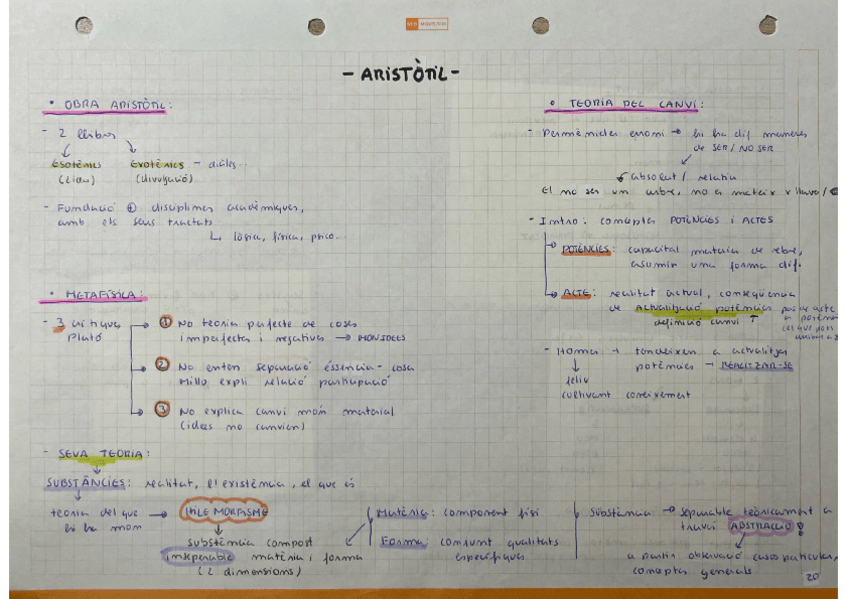 - ARISTÒTIL -
• OBRA ARISTÒTIL:
- 2 llibres
Esotèrics
Exotèrics - diàles...
(divulgació)
- Fundació ⊕ disciplines acadèmiques,
amb els seus tractats
↳ lòsica, física, psico...
• METAFÍSICA:
- 3 crítiques
Plató
① No teoria perfecte de coses
imperfectes i negatives → MON IDEES
② No enten separació essència - cosa
Millo expli relació participació
③ No explica canvi món material
(idees no canvien)
- SEVA TEORIA:
SUBSTÀNCIES: realitat, l'existència, el que és
teoria del que → HILEMORFISME
hi ha mon
substància compost
inseperable matèria i forma
(2 dimensions)
Matèria: component físi
Forma: conjunt qualitats
específiques
Substància → separable teòricament a
travci ABSTRACCIÓ
a partir observació casos particular,
conceptes generals
20
• TEORIA DEL CANVI:
- Permènides erroni → hi ha dif maneres
de SER / NO SER
absolut / relatiu
El no ser un arbre, no es mateix
- Intro: conceptes POTÈNCIES i ACTES
→ POTÈNCIES: capacitat matèria de rebre,
assumir una forma dif.
→ ACTE: realitat actual, conseqüència
de actualització potències
definició canvi ↑
- Home → tendeixen a actualitzar
potències → REALITZAR-SE
feliç
cultivant coneixement